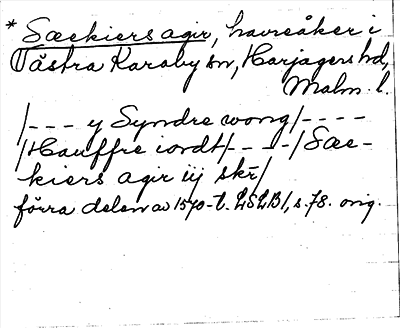 * Sæekiers agir, havreåker i
Västra Karaby sn, Harjagers hd,
Malm. l.
/--- y Syndre wong/----
/Hauffre iordt/----/Sæe-
kiers agir iij skr/
förra delen av 1570-t. LSLB1, s. 78. orig.